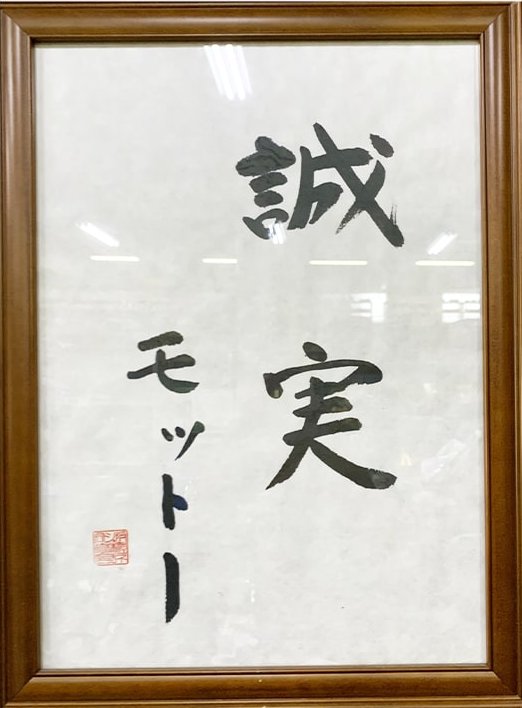 誠実
モットー